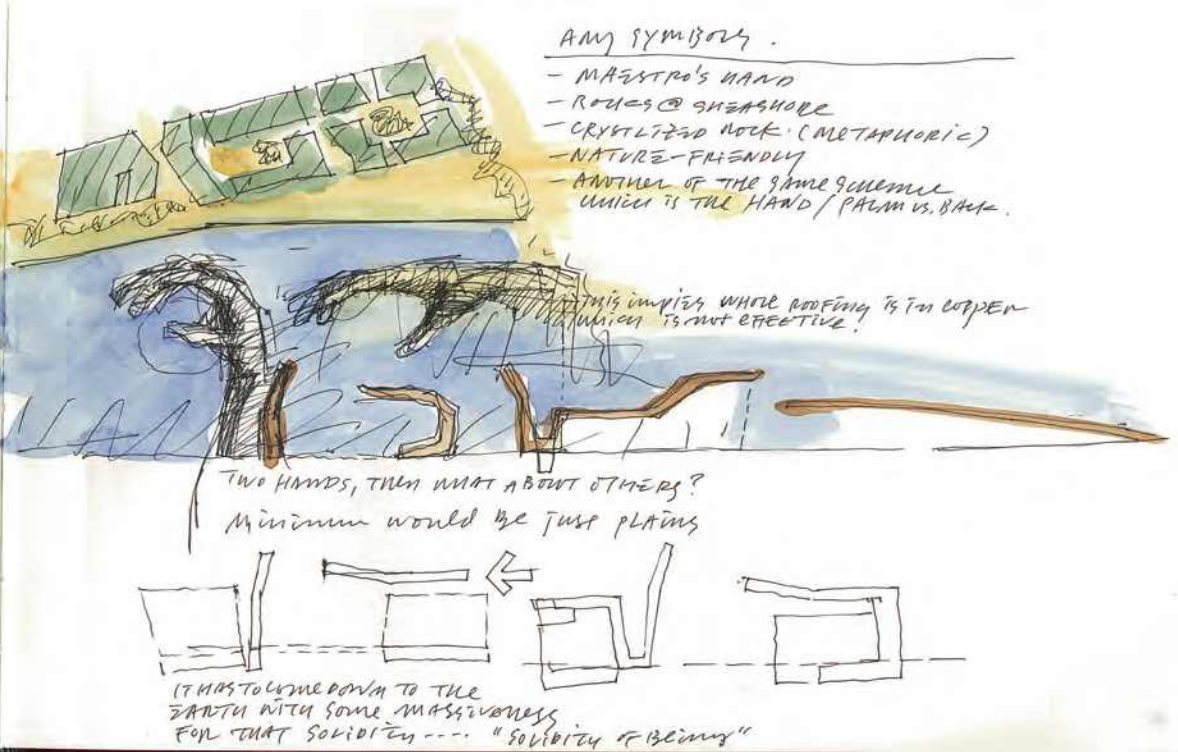 ANY SYMBOLS.
- MAESTRO'S HAND
- ROCKS @ SHEASHORE
- CRYSTLIZED ROCK. (METAPHORIC)
- NATURE-FRIENDLY
- ANOTHER OF THE SAME SCHEME
WHICH IS THE HAND / PALM VS. BACK.
THIS IMPLIES WHOLE ROOFING IS IN COPPER
WHICH IS NOT EFFECTIVE!
TWO HANDS, THEN WHAT ABOUT OTHERS?
Minimum would be just PLAINS
IT HAS TO COME DOWN TO THE
EARTH WITH SOME MASSIVENESS
FOR THAT SOLIDITY ---- "SOLIDITY OF BEING"